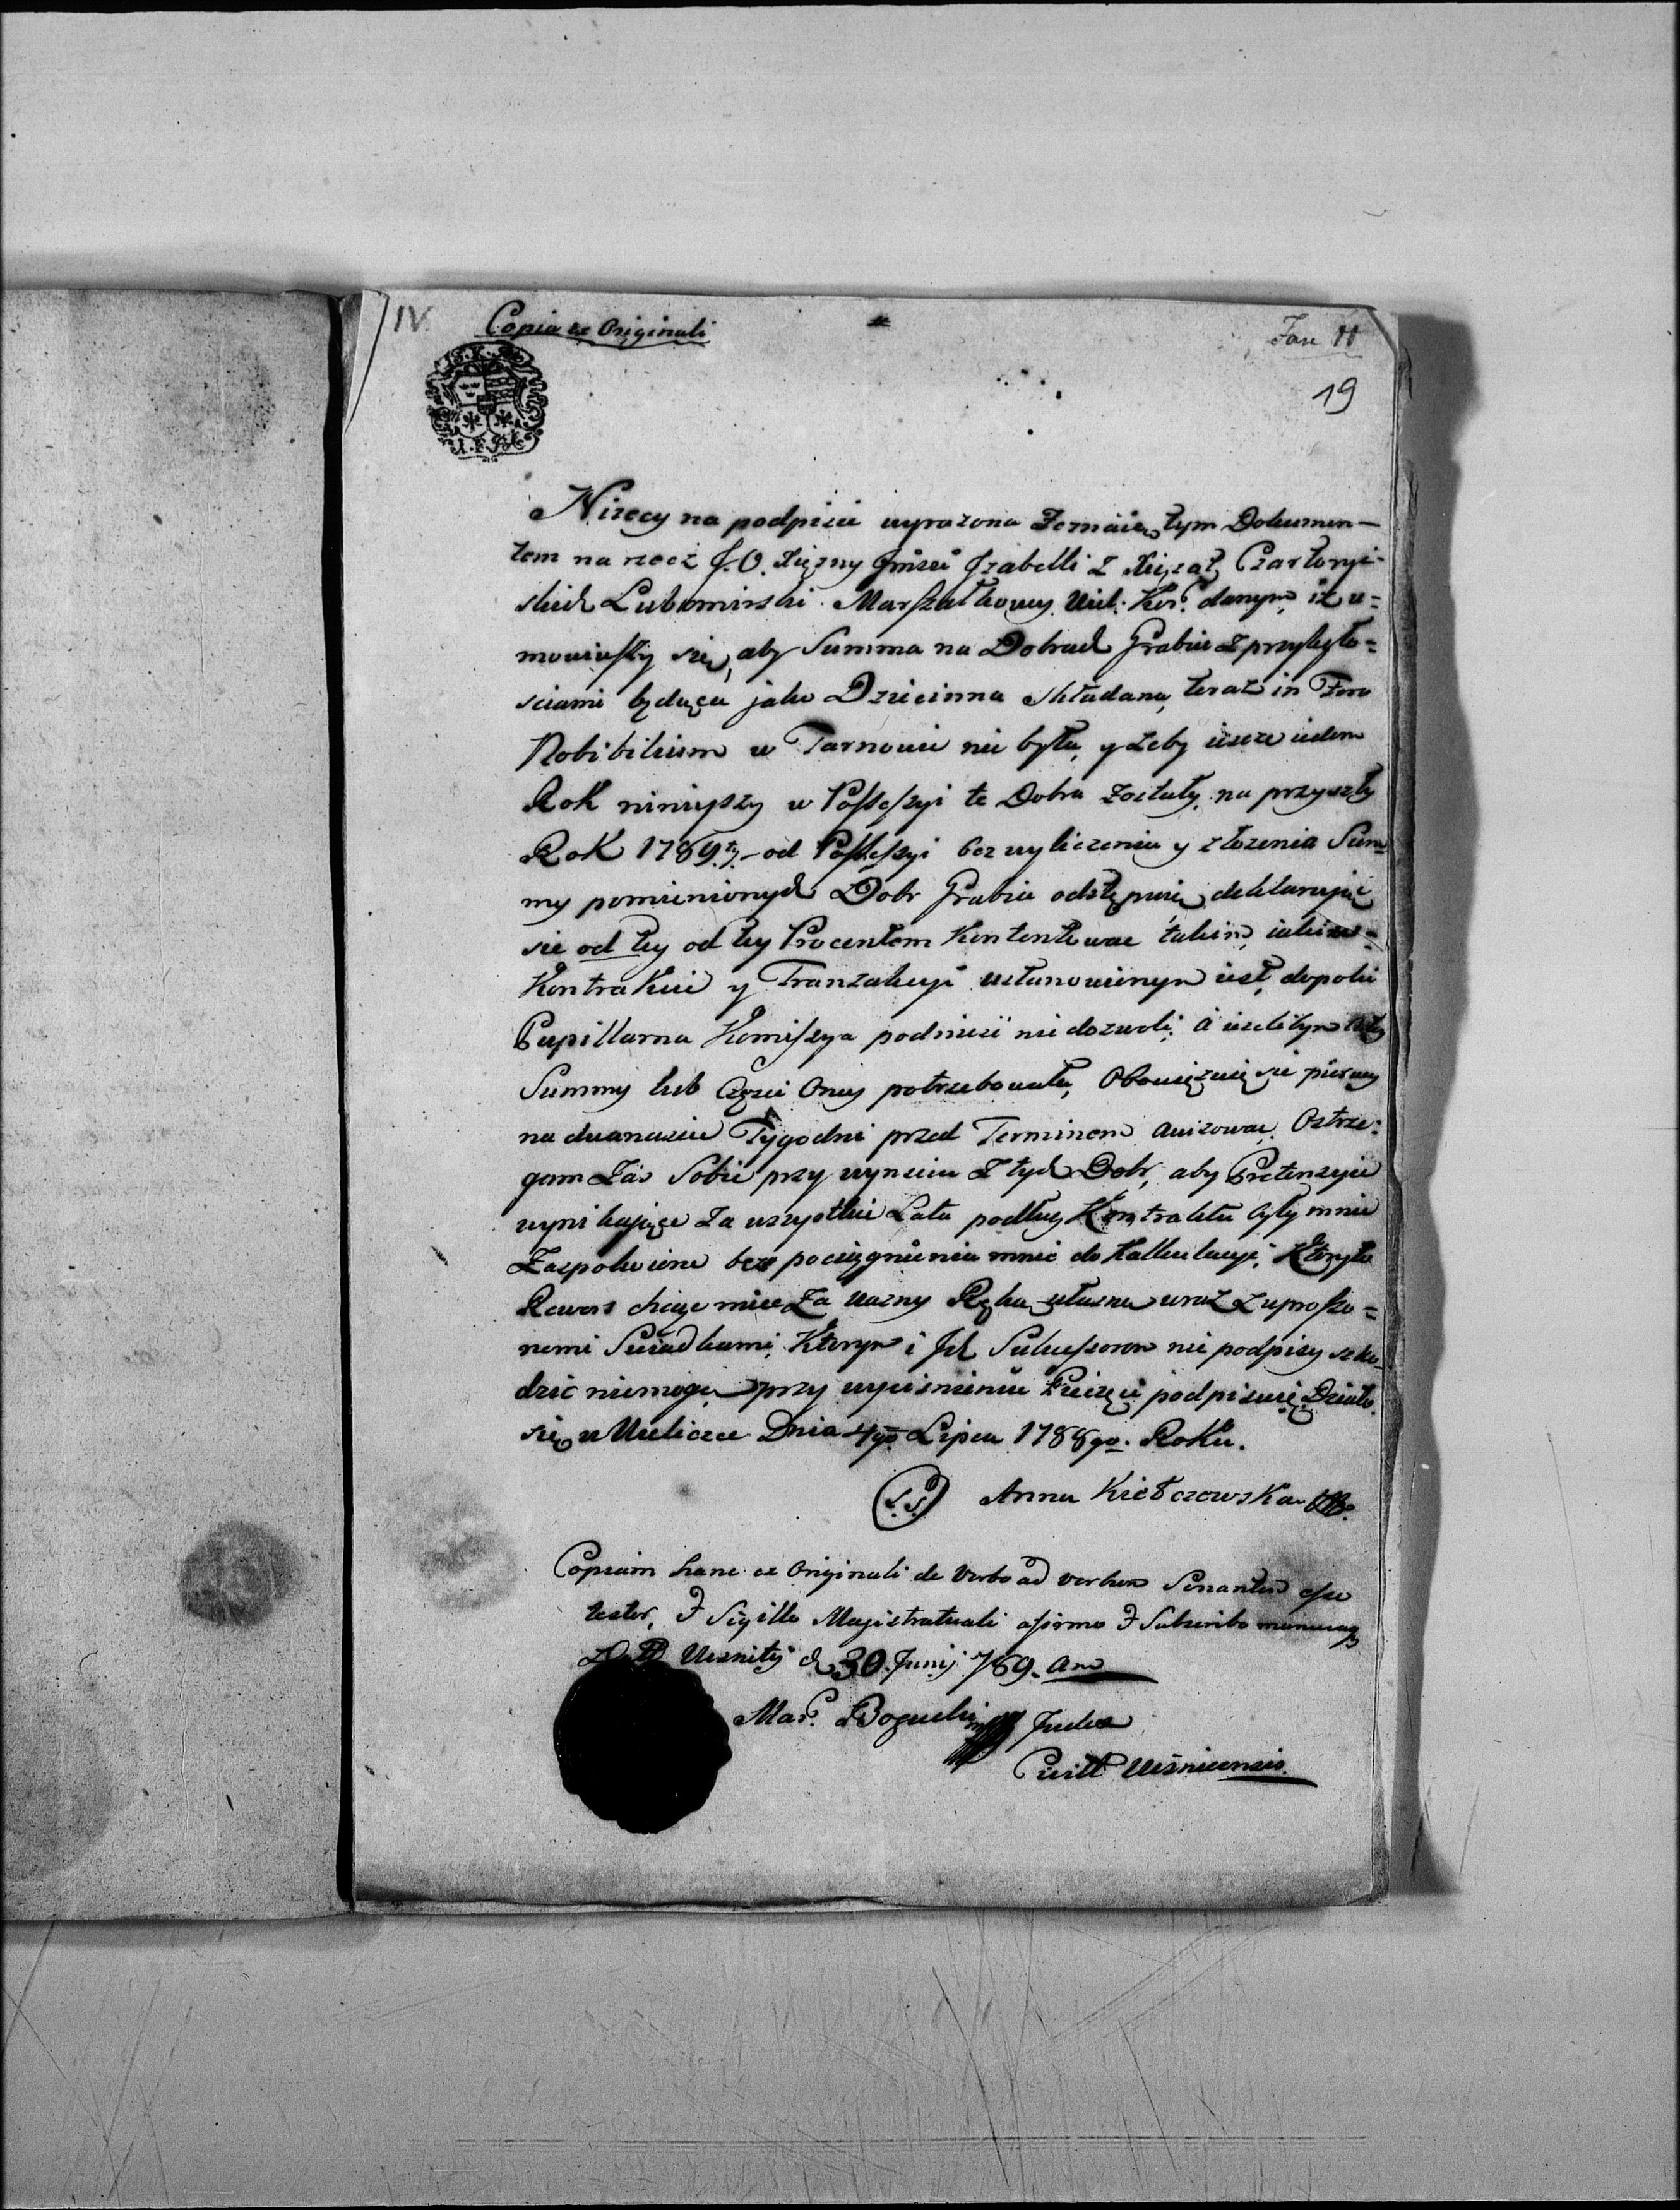 IV.
Copia ex Originali
Fasc 11
19
Nizey na podpisie wyrazona Zeznaię tym Dokumen-
tem na rzecz J.O. Xięzny Jmści Izabelli z Xiążąt Czartoryi-
skich Lubomirski Marszałkowy Wiel: Kor. danym, iż u=
mowiwszy się, aby Summa na Dobrach Grabie z przyległo=
sciami będąca jako Dziecinna składana teraz in Foro
Nobibilium w Tarnowie nie była, y żeby ieszcze ieden
Rok ninieyszy w Possessyi te Dobra zostały, na przyszły
Rok 1789.ty - od Possessyi bez wyliczenia y złozenia Sum=
my pomienionych Dobr Grabia odstępuię, deklaruiąc
sie od tey od tey Procentem Kontentowac takim, iakim w=
Kontrakcie y Tranzakcyi ustanowionym iest, dopoki
Pupillarna Komissya podnieść nie dozwoli; á iezelibym cały
Summy lub Częsci Oney potrzebowała, Obowiązuię sie pierwey
na dwanascie Tygodni przed Terminem awizowac. Ostrze:
gam Zaś Sobie przy wyisciu z tych Dobr, aby Pretensye
wynikaiące Za wszystkie Lata podług Kontraktu były mnie
Zaspokoione bez pociągnienia mnie do Kalkulacyi, Ktoryto
Rewers chcąc miec Za wazny Ręką własną wraz z uproszo=
nemi Swiadkami, Ktorym i Ich Sukcessorom nie podpisy szko=
dzić niemogą, przy wycisnieniu Pieczęci podpisuię. Działo
się w Wieliczce Dnia 4go Lipca 1788go. Roku.
(L.S.) Anna Kiełczewska
Copiam hanc ex Originali de Verbo ad verbum Sonantem esse
testor, & Sigillo Magistratuali afirmo & Subscribo manu
Wisnity d 30 Junij 789. Ano
Mar. Bogucki Judex
Civitt Wisnicensis.